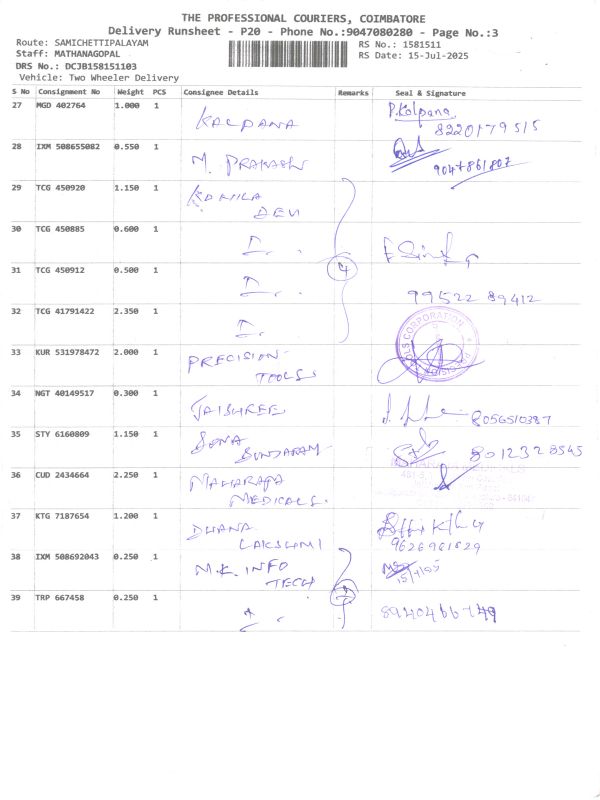 THE PROFESSIONAL COURIERS, COIMBATORE
Delivery Runsheet - P20 - Phone No.:9047080280 - Page No.:3
Route: SAMICHETTIPALAYAM RS No.: 1581511
Staff: MATHANAGOPAL RS Date: 15-Jul-2025
DRS No.: DCJB158151103
Vehicle: Two Wheeler Delivery
S No Consignment No Weight PCS Consignee Details Remarks Seal & Signature
27 MGD 402764 1.000 1 KALPANA P.Kalpana
8220179515
28 IXM 508655082 0.550 1 M. PRAKASH
9047861807
29 TCG 450920 1.150 1 KOKILA
DEVI
30 TCG 450885 0.600 1
31 TCG 450912 0.500 1 4
99522 89412
32 TCG 41791422 2.350 1
33 KUR 531978472 2.000 1 PRECISION
TOOLS CORPORATION
34 NGT 40149517 0.300 1 JAISHREE 8056510387
35 STY 6160809 1.150 1 SONA
SUNDARAM 8012328545
36 CUD 2434664 2.250 1 MAHARAJA
MEDICALS.
37 KTG 7187654 1.200 1 DHANA
LAKSHMI
9626961629
38 IXM 508692043 0.250 1 M.K. INFO
TECH
39 TRP 667458 0.250 1